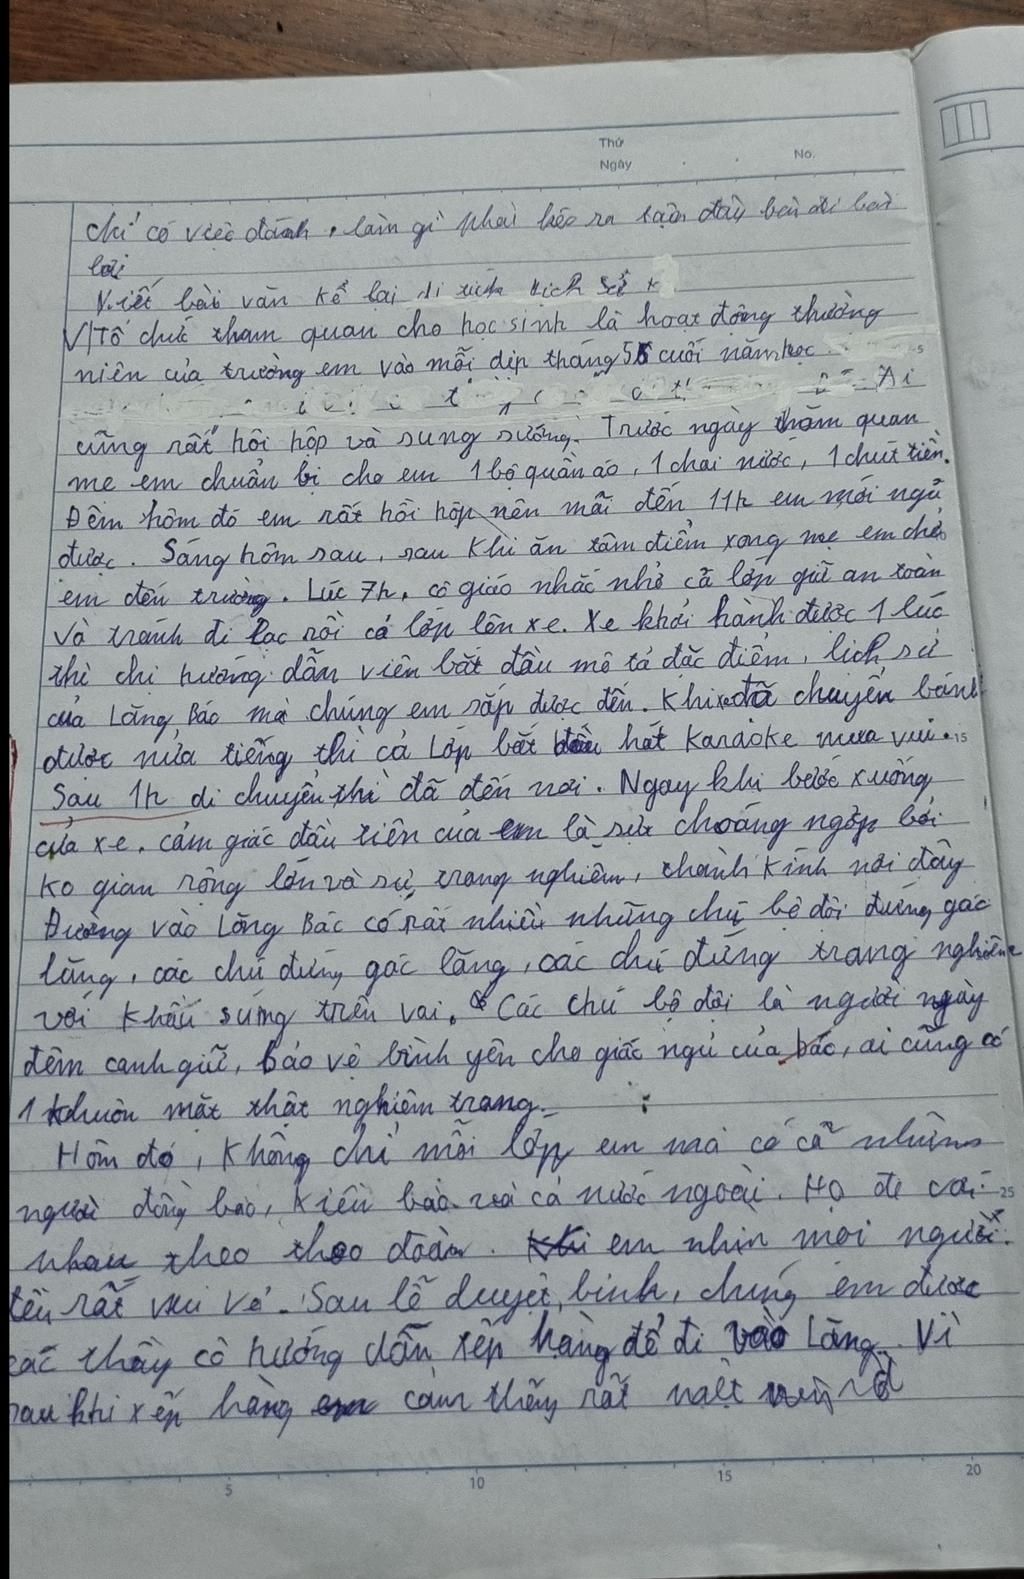 Thứ
Ngày No.
chỉ có việc đánh, làm gì phải kéo ra tận đây bàn đi bàn
lại
Viết bài văn kể lại di tích lịch sử
V/Tổ chức tham quan cho học sinh là hoạt động thường
niên của trường em vào mỗi dịp tháng 5 cuối năm học
Ai
cũng rất hồi hộp và sung sướng. Trước ngày thăm quan
mẹ em chuẩn bị cho em 1 bộ quần áo, 1 chai nước, 1 chút tiền.
Đêm hôm đó em rất hồi hộp nên mãi đến 11h em mới ngủ
được. Sáng hôm sau, sau khi ăn tâm điểm xong mẹ em chở
em đến trường. Lúc 7h, cô giáo nhắc nhở cả lớp giữ an toàn
và tránh đi lạc rồi cả lớp lên xe. Xe khởi hành được 1 lúc
thì chị hướng dẫn viên bắt đầu mô tả đặc điểm, lịch sử
của Lăng Bác mà chúng em sắp được đến. Khi xe đã chuyển bánh
được nửa tiếng thì cả lớp bắt đầu hát karaoke mua vui. 15
Sau 1h di chuyển thì đã đến nơi. Ngay khi bước xuống
cửa xe, cảm giác đầu tiên của em là sự choáng ngợp bởi
ko gian rộng lớn và sự trang nghiêm, thành kính nơi đây
Đường vào Lăng Bác có rất nhiều những chú bộ đội đứng gác
lăng, các chú đứng gác lăng, các chú đứng trang nghiêm
với khẩu súng trên vai. Các chú bộ đội là người ngày
đêm canh giữ, bảo vệ bình yên cho giấc ngủ của bác, ai cũng có
1 khuôn mặt thật nghiêm trang.
Hôm đó, không chỉ mỗi lớp em mà có cả những
người đồng bào, kiều bào và cả nước ngoài. Họ đi 25
nhau theo theo đoàn. em nhìn mọi người
rất vui vẻ. Sau lễ duyệt binh, chúng em được
các thầy cô hướng dẫn xếp hàng để đi vào Lăng. Vì
sau khi xếp hàng em cảm thấy rất
5 10 15 20